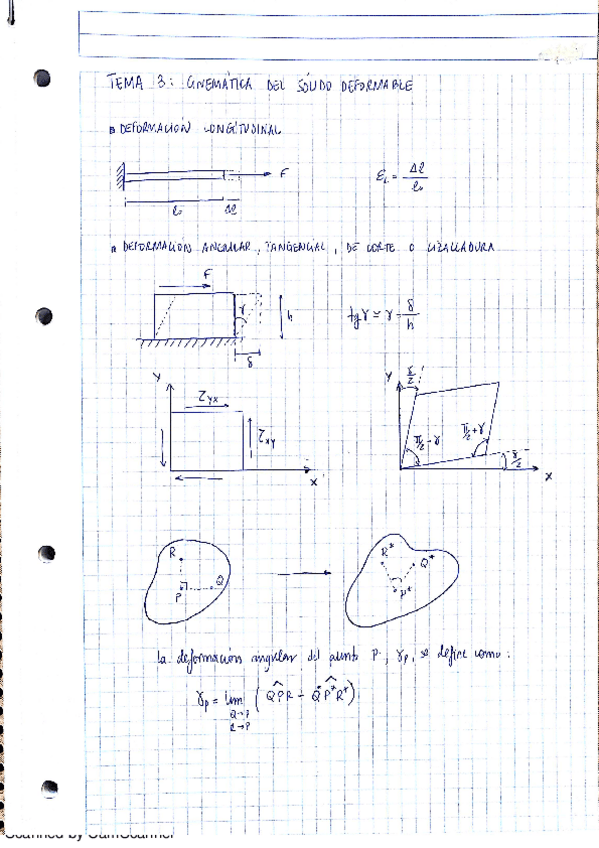 TEMA 3: CINEMÁTICA DEL SÓLIDO DEFORMABLE
DEFORMACIÓN LONGITUDINAL
F
ε_L = Δl / l₀
l₀ Δl
DEFORMACIÓN ANGULAR, TANGENCIAL, DE CORTE O CIZALLADURA
F
γ h
tg γ ≃ γ = δ / h
δ
Y τyx τxy X
Y γ/2 π/2 - γ π/2 + γ γ/2 X
R P Q
R* Q* P*
la deformación angular del punto P, γp, se define como:
γp = lim (QPR - Q*P*R*)
Q→P
R→P
Scanned by CamScanner